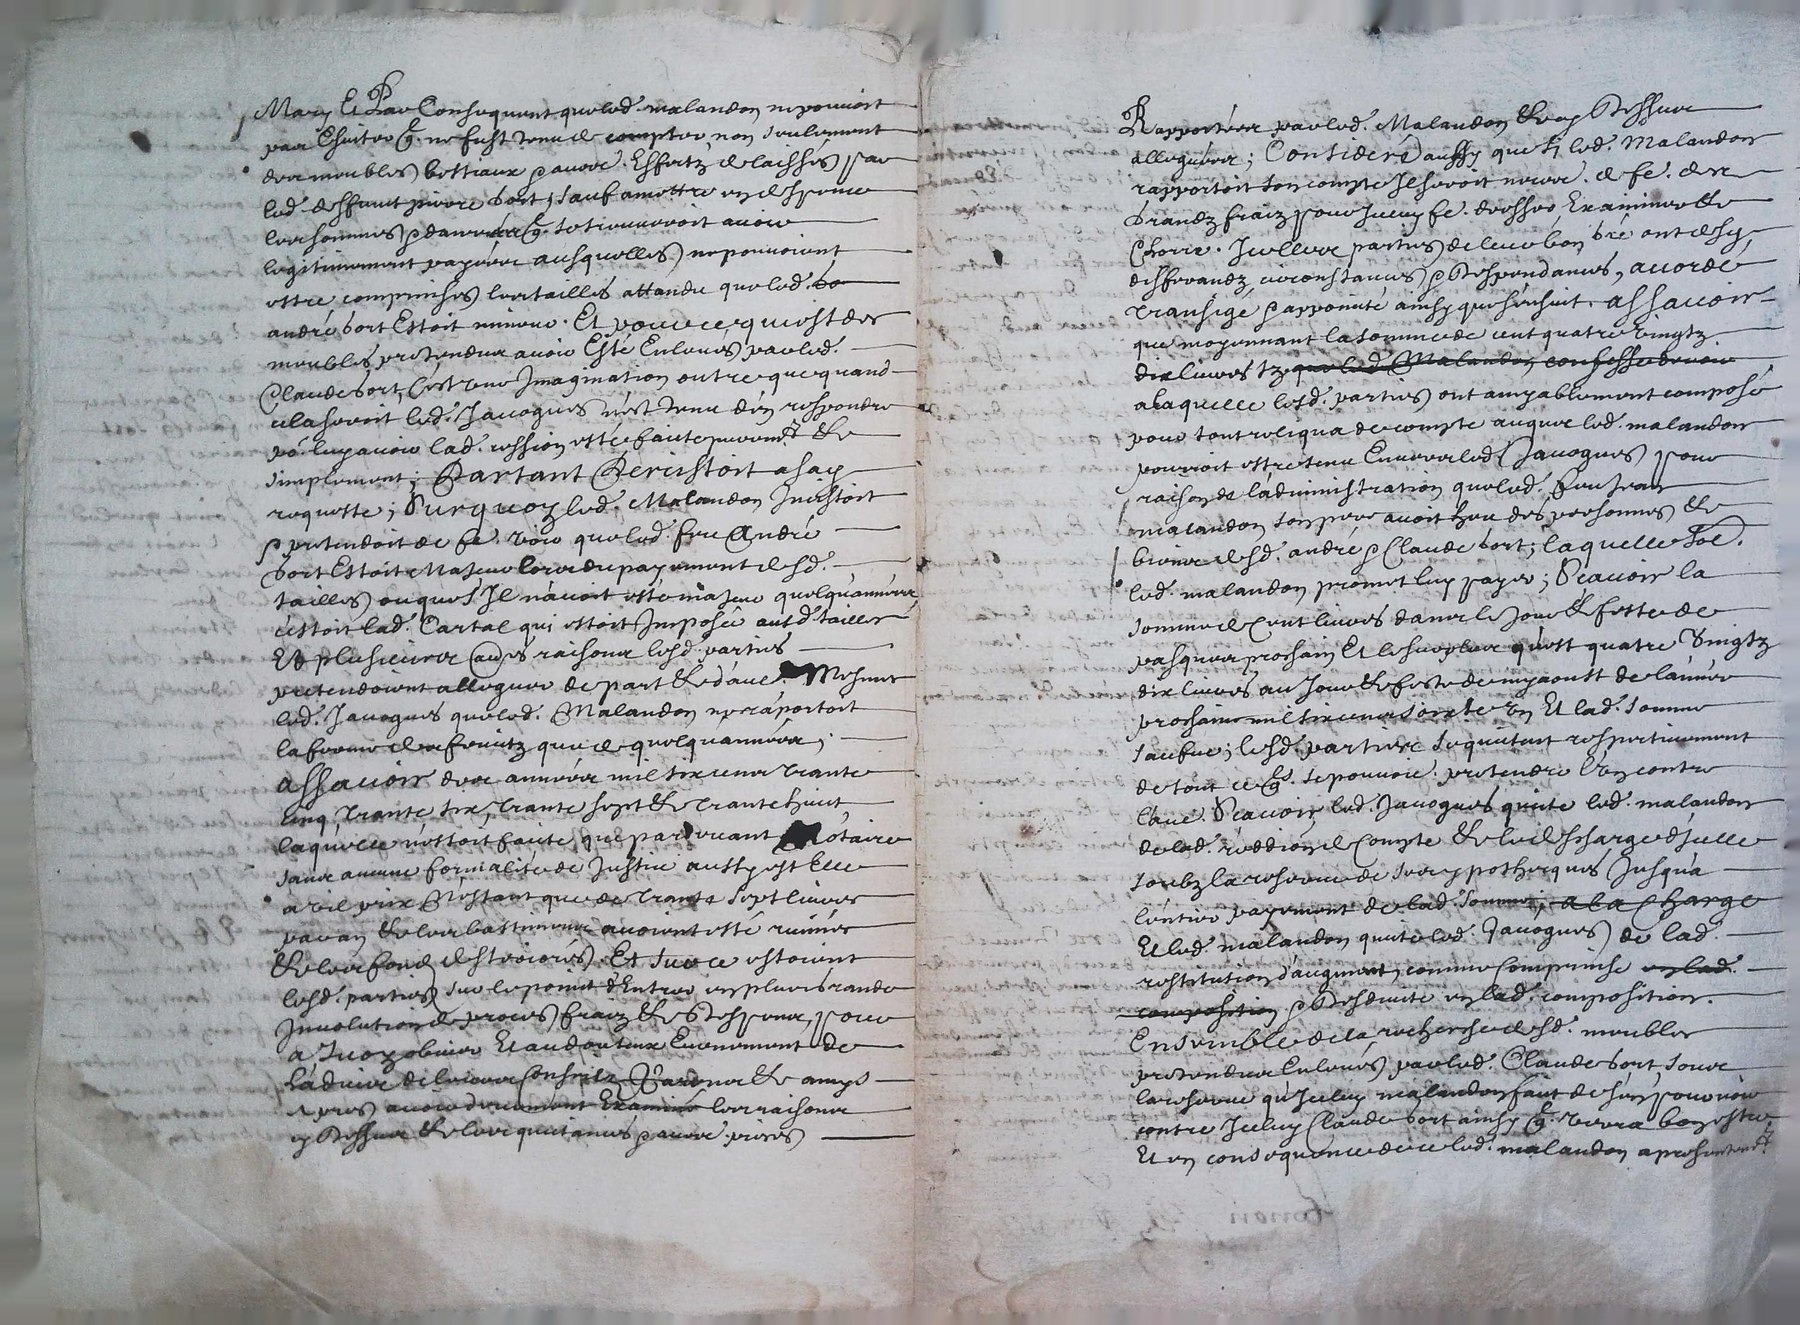 Mary Et Par Consequent que led. malandon ne pouvoit
par Ehuiter q. ne fust tenu de compter non seulement
des meubles bestiaux pauvre Effectz delaissés par
led. deffunt pierre Sort, sauf a mettre en despence
les sommes q. se trouveroit avoir
legitimement payées ausquelles ne pouvoient
estre comprinses les tailles attandu que led.
andré Sort Estoit mineur. Et pour ce qui est des
meubles pretendus avoir Esté Enlevés par led.
Claude Sort, C'est une Imagination outre que quand
cela seroit led. Jacognes n'est tenu d'en respondre
po. luy avoir lad. cession esté faite &
simplement; Partant Persistoit a sa
requeste; Surquoy led. Malandon Insistoit
pretendoit de fe. voir que led. feu André
Sort Estoit Majeur lors du payement desd.
tailles ou que s'Il n'avoit esté majeur quelqu'années
c'estoit lad. Cartal qui estoit Imposée ausd. tailles
Et plusieurs au.es raisons lesd. parties
pretendoient alleguer de part & d'autre. Mesmes
led. Jacognes que led. Malandon ne raportoit
la ferme des fruitz que de quelqu années;
assavoir des années mil six cens trante
cinq, trante six, trante sept & trante huict
laquelle n'estoit faite que par devant Notaire
sans aucune formalité de Justice aussy est Elle
a vil prix N'estant que de trante sept livres
par an & les bastimens avoient esté ruinés
& les fondz destériorés. Et sur ce estoient
lesd. parties sur le point d'Entrer en plus grande
Involution de proces fraiz & Despens, pour
a quoy obvier Et au douteux Evenement de
l'advis de leurs Conseilz Parens & amys
apres avoir deuement Examiné les raisons
cy Dessus & les quitances pauvre prises
Rapportées par led. Malandon & cy Dessus
alleguées; Consideré aussy que si led. Malandon
rapportoit son compte Il seroit neces. de fe. des
Grandz fraiz pour Iceluy fe. dresser Examiner &
Clorre. Icelles parties de leur bon gré ont desd.
differandz circonstances & Despendances, accordé
transigé & appointé ainsy que s'ensuit. assavoir
que moyennant la somme de cent quatre vingtz
dix livres tz que led. Malandon confesse devoir
a laquelle lesd. parties ont amyablement composé
pour tout reliqua de compte auquel led. malandon
pourroit estre tenu Envers led. Jacognes pour
raison de l'administration que led. feu Jean
malandon son pere avoit heu des personnes &
biens desd. andré & Claude Sort; laquelle so.e
led. malandon promet luy payer; Scavoir la
somme de Cent livres dans le Jour & feste de
pasques prochain Et le surplus qu'est quatre Vingtz
dix livres au Jour & feste de my aoust de l'année
prochaine mil six cens soixte un Et lad. somme
Sauf ; lesd. parties se quitent respectivement
de tout ce q. se pouvoir pretendre l'un contre
l'au.e Scavoir led. Jacognes quite led. malandon
de lad. reddiōn de Compte & le descharge d'Icelle
soubz la reserve de ses yppotheques Jusqu'a
l'entier payement de lad. somme, a la charge
Et led. malandon quite led. Jacognes de lad.
restitution d'augment comme Comprinse en lad.
composition & Desduite en lad. composition.
Ensemble de la recherche desd. meubles
pretendus Enlevés par led. Claude Sort, sous
la reserve qu'Iceluy malandon fait de s'en pourvoir
contre Iceluy Claude Sort ainsy q. verra bon estre
Et en consequence de ce led. malandon a presentem.t